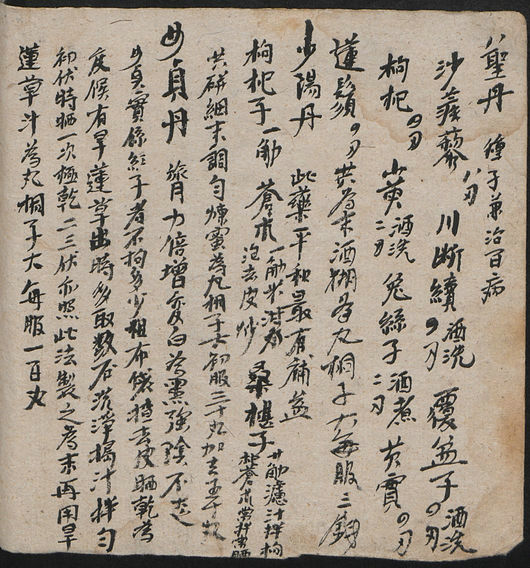 八聖丹 種子兼治百病
沙蒺藜八刃 川斷續四刃酒洗 覆盆子四刃酒洗
枸杞四刃 山萸二刃酒洗 兔絲子二刃酒煮 芡實四刃
蓮鬚四刃 共為末酒糊為丸桐子大每服三錢
少陽丹 此藥平和最有補益
枸杞子一觔 蒼朮一觔米泔水泡去皮炒 桑椹子廿觔濾汁拌枸杞蒼朮
共研細末調勻煉蜜為丸桐子大初服三十丸加至五十丸
女貞丹 膂力倍增變白為黑強陰不走
女貞實係紅子者不拘多少粗布袋搓去皮晒乾為
度候有旱蓮草出時多取数石洗淨搗汁拌勻
初伏時晒一次極乾二三伏亦照此法製之為末再用旱
蓮草汁為丸桐子大每服一百丸